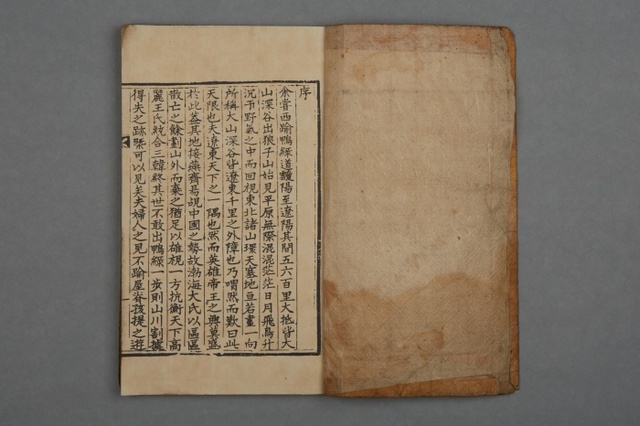 序
余嘗西踰鴨綠道靉陽至遼陽其間五六百里大抵皆大
山深谷出狼子山始見平原無際混混茫茫日月飛鳥升
沉于野氣之中而回視東北諸山環天塞地亘若畫一向
所稱大山深谷皆遼東千里之外障也乃喟然而歎曰此
天限也夫遼東天下之一隅也然而英雄帝王之興莫盛
於此蓋其地接燕齊易覘中國之勢故渤海大氏以區區
散亡之餘劃山外而棄之猶足以雄視一方抗衡天下高
麗王氏統合三韓終其世不敢出鴨綠一步則山川割據
得失之跡槩可以見矣夫婦人之見不踰屋脊孩提之遊